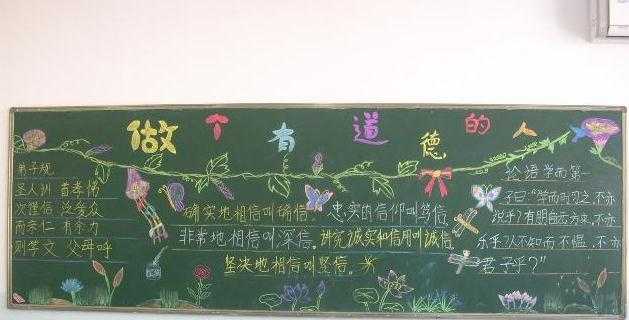 做个有道德的人
弟子规
圣人训 首孝悌
次谨信 泛爱众
而亲仁 有余力
则学文 父母呼
确实地相信叫确信。忠实的信仰叫笃信。
非常地相信叫深信。讲究诚实和信用叫诚信。
坚决地相信叫坚信。
论语 学而第一
子曰:"学而时习之,不亦
说乎?有朋自远方来,不亦
乐乎?人不知而不愠,不亦
君子乎?"